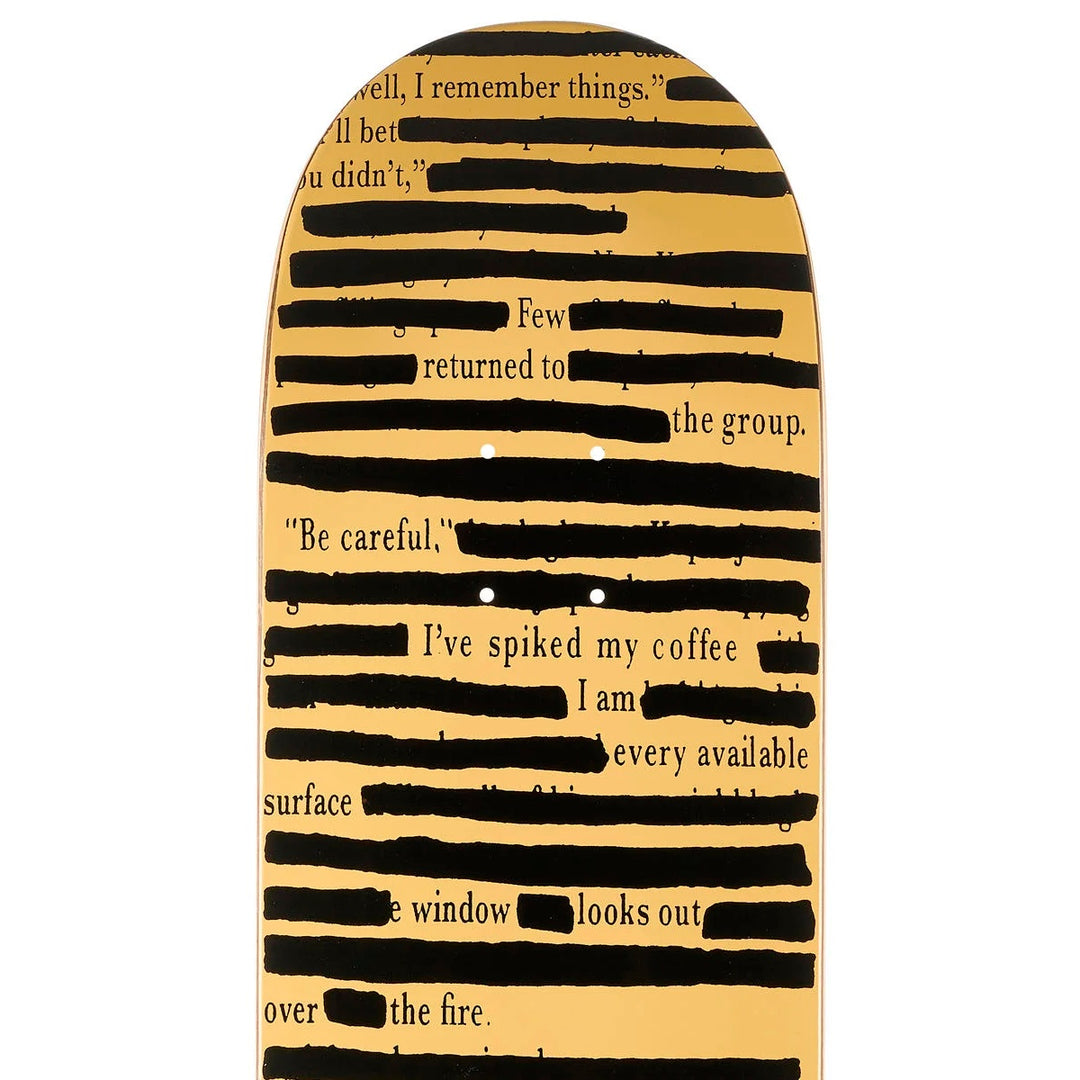 well, I remember things.”
'll bet
ou didn’t,”
Few
returned to
the group.
"Be careful,"
I’ve spiked my coffee
I am
every available
surface
e window looks out
over the fire.